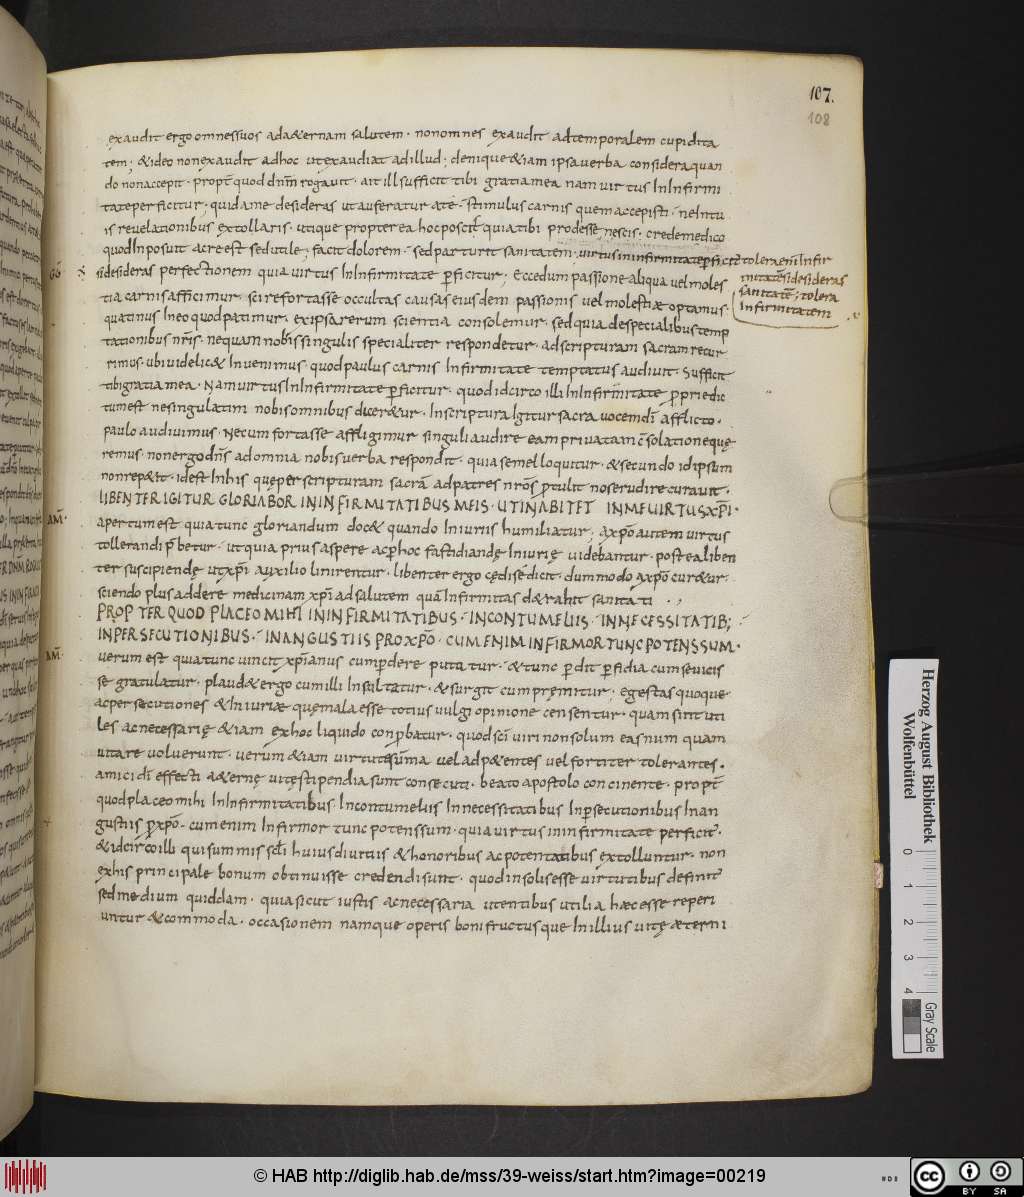 107.
108
exaudit ergo omnes suos ad a&ernam salutem · non omnes exaudit ad temporalem cupidita
tem; & ideo non exaudit ad hoc ut exaudiat ad illud; denique &iam ipsa verba considera quan
do non accepit · propt̄ quod dnm̄ rogavit · ait ill sufficit tibi gratia mea nam virtus In Infirmi
tate perficitur; quid a me desideras ut auferatur a te · stimulus carnis quem accepisti · ne In tu
is revelationibus extollaris · utique propterea hoc poscit quia tibi prodesse nescis · crede medico
quod Inposuit acre est sed utile; facit dolorem · sed parturit sanitatem; virtus in infirmitate perficit
tolera enī Infir
mitatē si desideras
sanitatē; tolera
Infirmitatem
GG
si desideras perfectionem quia virtus In Infirmitate perficitur; Eccedum passione aliqua vel moles
tia carnis afficimur · scire fortasse occultas causas eiusdem passionis vel molestiæ optamus
quatinus In eo quod patimur · ex ipsa rerum scientia consolemur · sed quia de specialibus temp
tationibus nr̄is · nequam nobis singulis specialiter respondetur · ad scripturam sacram recur
rimus · ubi videlic& Invenimus · quod paulus carnis Infirmitate temptatus audivit · Sufficit
tibi gratia mea · Nam virtus In Infirmitate perficitur · quod idcirco illi In Infirmitate proprię dic
tum est ne singulatim nobis omnibus dicer&ur · In scriptura Igitur sacra vocem dī afflicto ·
paulo audivimus · Ne cum fortasse affligimur singuli audire eam privatam cōsolatione quę
remus · non ergo dn̄s ad omnia nobis verba respondit · quia semel loquitur · & secundo id ipsum
non rep&it · id est In his quę per scripturam sacrā ad patres nr̄os protulit nos erudire curavit ·
LIBENTER IGITUR GLORIABOR IN INFIRMITATIBUS MEIS · UT INABITET IN ME UIRTUS XPĪ ·
AM̄
apertum est quia tunc gloriandum doc& quando Iniuriis humiliatur; a xpo autem virtus
tollerandi p̄betur · ut quia prius aspere ac per hoc fastidiandę Iniurię videbantur · postea liben
ter suscipiendę ut xpī auxilio linirentur · libenter ergo cędi sē dicit · dummodo a xpo cur&ur ·
sciendo plus addere medicinam xpī ad salutem quā Infirmitas d&rahit sanitati · ,
PROPTER QUOD PLACEO MIHI IN INFIRMITATIBUS · IN CONTUMELIIS · IN NECESSITATIB;
IN PERSECUTIONIBUS · IN ANGUSTIIS PRO XPO · CUM ENIM INFIRMOR TUNC POTENS SUM ·
AM̄
verum est quia tunc vincit xpīanus cum perdere putatur · & tunc perdit perfidia cum se vicis
se gratulatur · plaud& ergo cum illi Insultatur · & surgit cum premitur; egestas quoque
ac persecutiones & Iniuriæ quę mala esse totius vulgi opinione censentur · quam sint uti
les ac necessarię &iam ex hoc liquido conprobatur · quod scī viri non solum eas numquam
vitare voluerunt · verum &iam virtute sūma vel adp&entes vel fortiter tolerantes ·
amici dī effecti a&ernę vitę stipendia sunt consecuti · beato apostolo concinente · propt̄
quod placeo mihi In Infirmitatibus In contumeliis In necessitatibus In persecutionibus In an
gustiis pro xpo · cum enim Infirmor tunc potens sum · quia virtus in infirmitate perficit̄ ·
& idcirco illi qui summis scli huius divitiis & honoribus ac potentatibus extolluntur · non
ex his principale bonum obtinuisse credendi sunt · quod in solis esse virtutibus definit̄
sed medium quiddam · quia sicut iustis ac necessaria utentibus utilia hæc esse reperi
untur & commoda · occasionem namque operis boni fructusque In illius vitę æterni
Herzog August Bibliothek
Wolfenbüttel
0 1 2 3 4
Gray Scale
© HAB http://diglib.hab.de/mss/39-weiss/start.htm?image=00219
cc BY SA